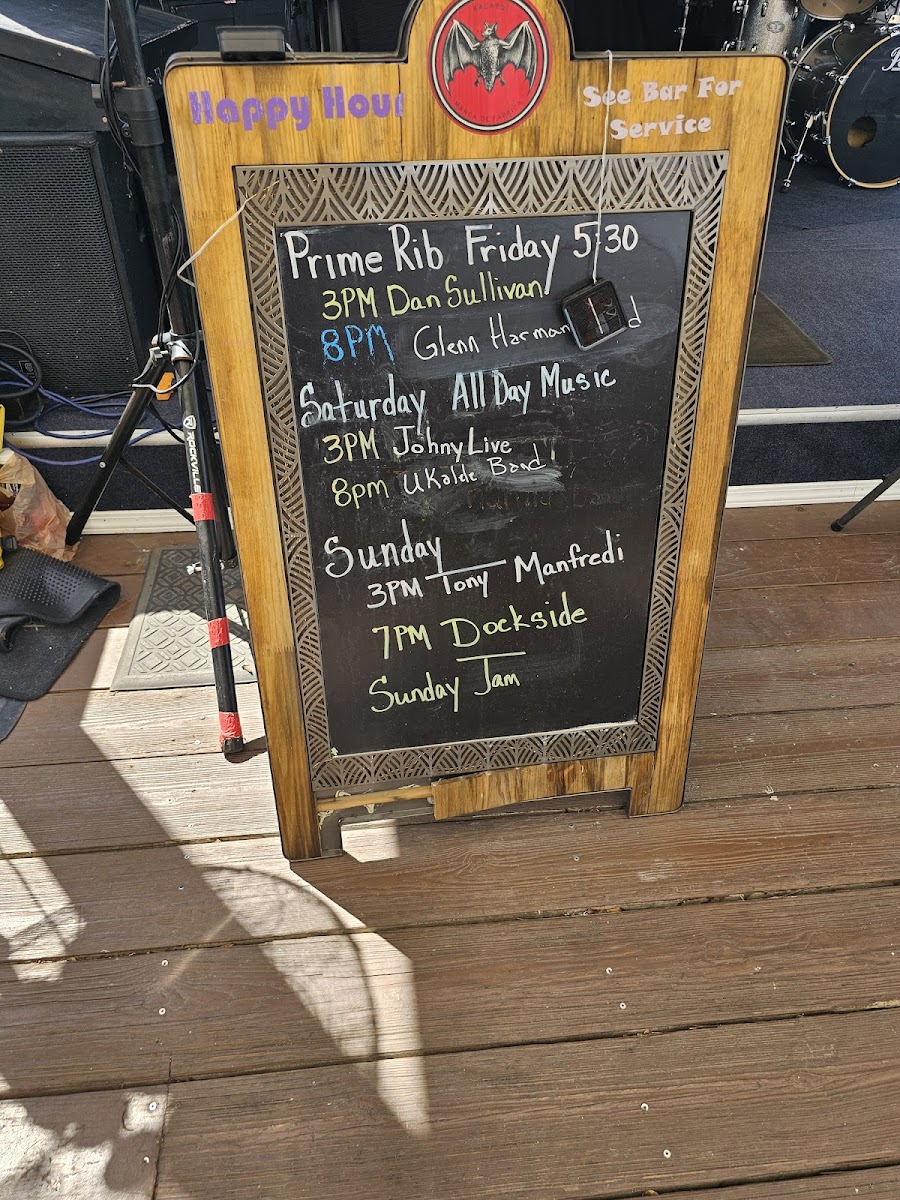 BACARDI
Happy Hour
See Bar For
Service
Prime Rib Friday 5:30
3PM Dan Sullivan
8PM Glenn Harman
Saturday All Day Music
3PM Johny Live
8pm UKalele Band
Sunday
3PM Tony Manfredi
7PM Dockside
Sunday Jam
ROCKVILLE